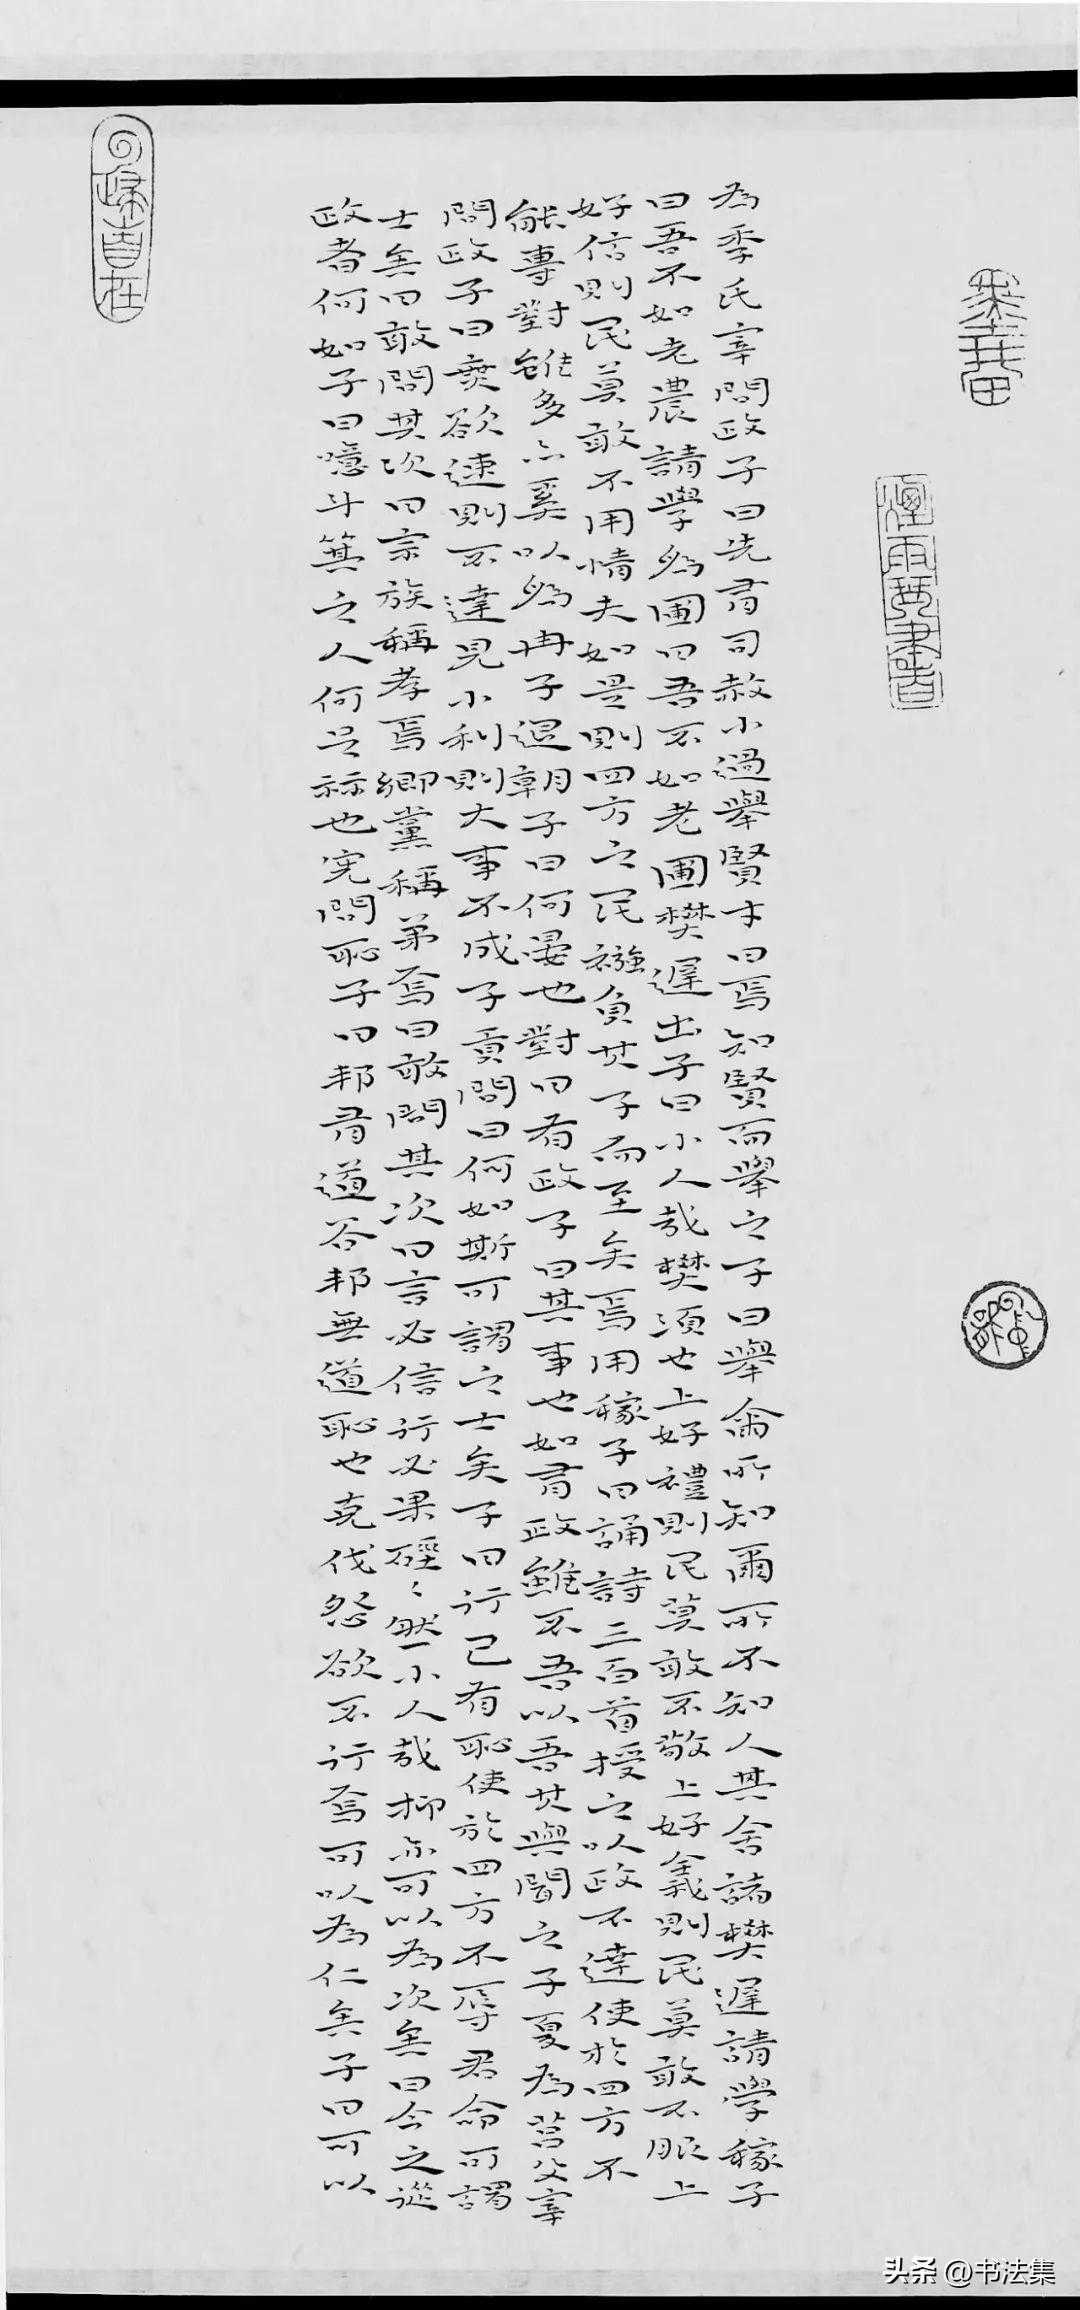 為季氏宰問政子曰先有司赦小過舉賢才曰焉知賢而舉之子曰舉爾所知爾所不知人其舍諸樊遲請學稼子
曰吾不如老農請學為圃曰吾不如老圃樊遲出子曰小人哉樊須也上好禮則民莫敢不敬上好義則民莫敢不服上
好信則民莫敢不用情夫如是則四方之民襁負其子而至矣焉用稼子曰誦詩三百首授之以政不達使於四方不
能專對雖多亦奚以為冉子退朝子曰何晏也對曰有政子曰其事也如有政雖不吾以吾其與聞之子夏為莒父宰
問政子曰無欲速則不達見小利則大事不成子貢問曰何如斯可謂之士矣子曰行己有恥使於四方不辱君命可謂
士矣曰敢問其次曰宗族稱孝焉鄉黨稱弟焉曰敢問其次曰言必信行必果硜〻然小人哉抑亦可以為次矣曰今之從
政者何如子曰噫斗筲之人何足算也憲問恥子曰邦有道谷邦無道恥也克伐怨欲不行焉可以為仁矣子曰可以
煙雨
头条 @书法集